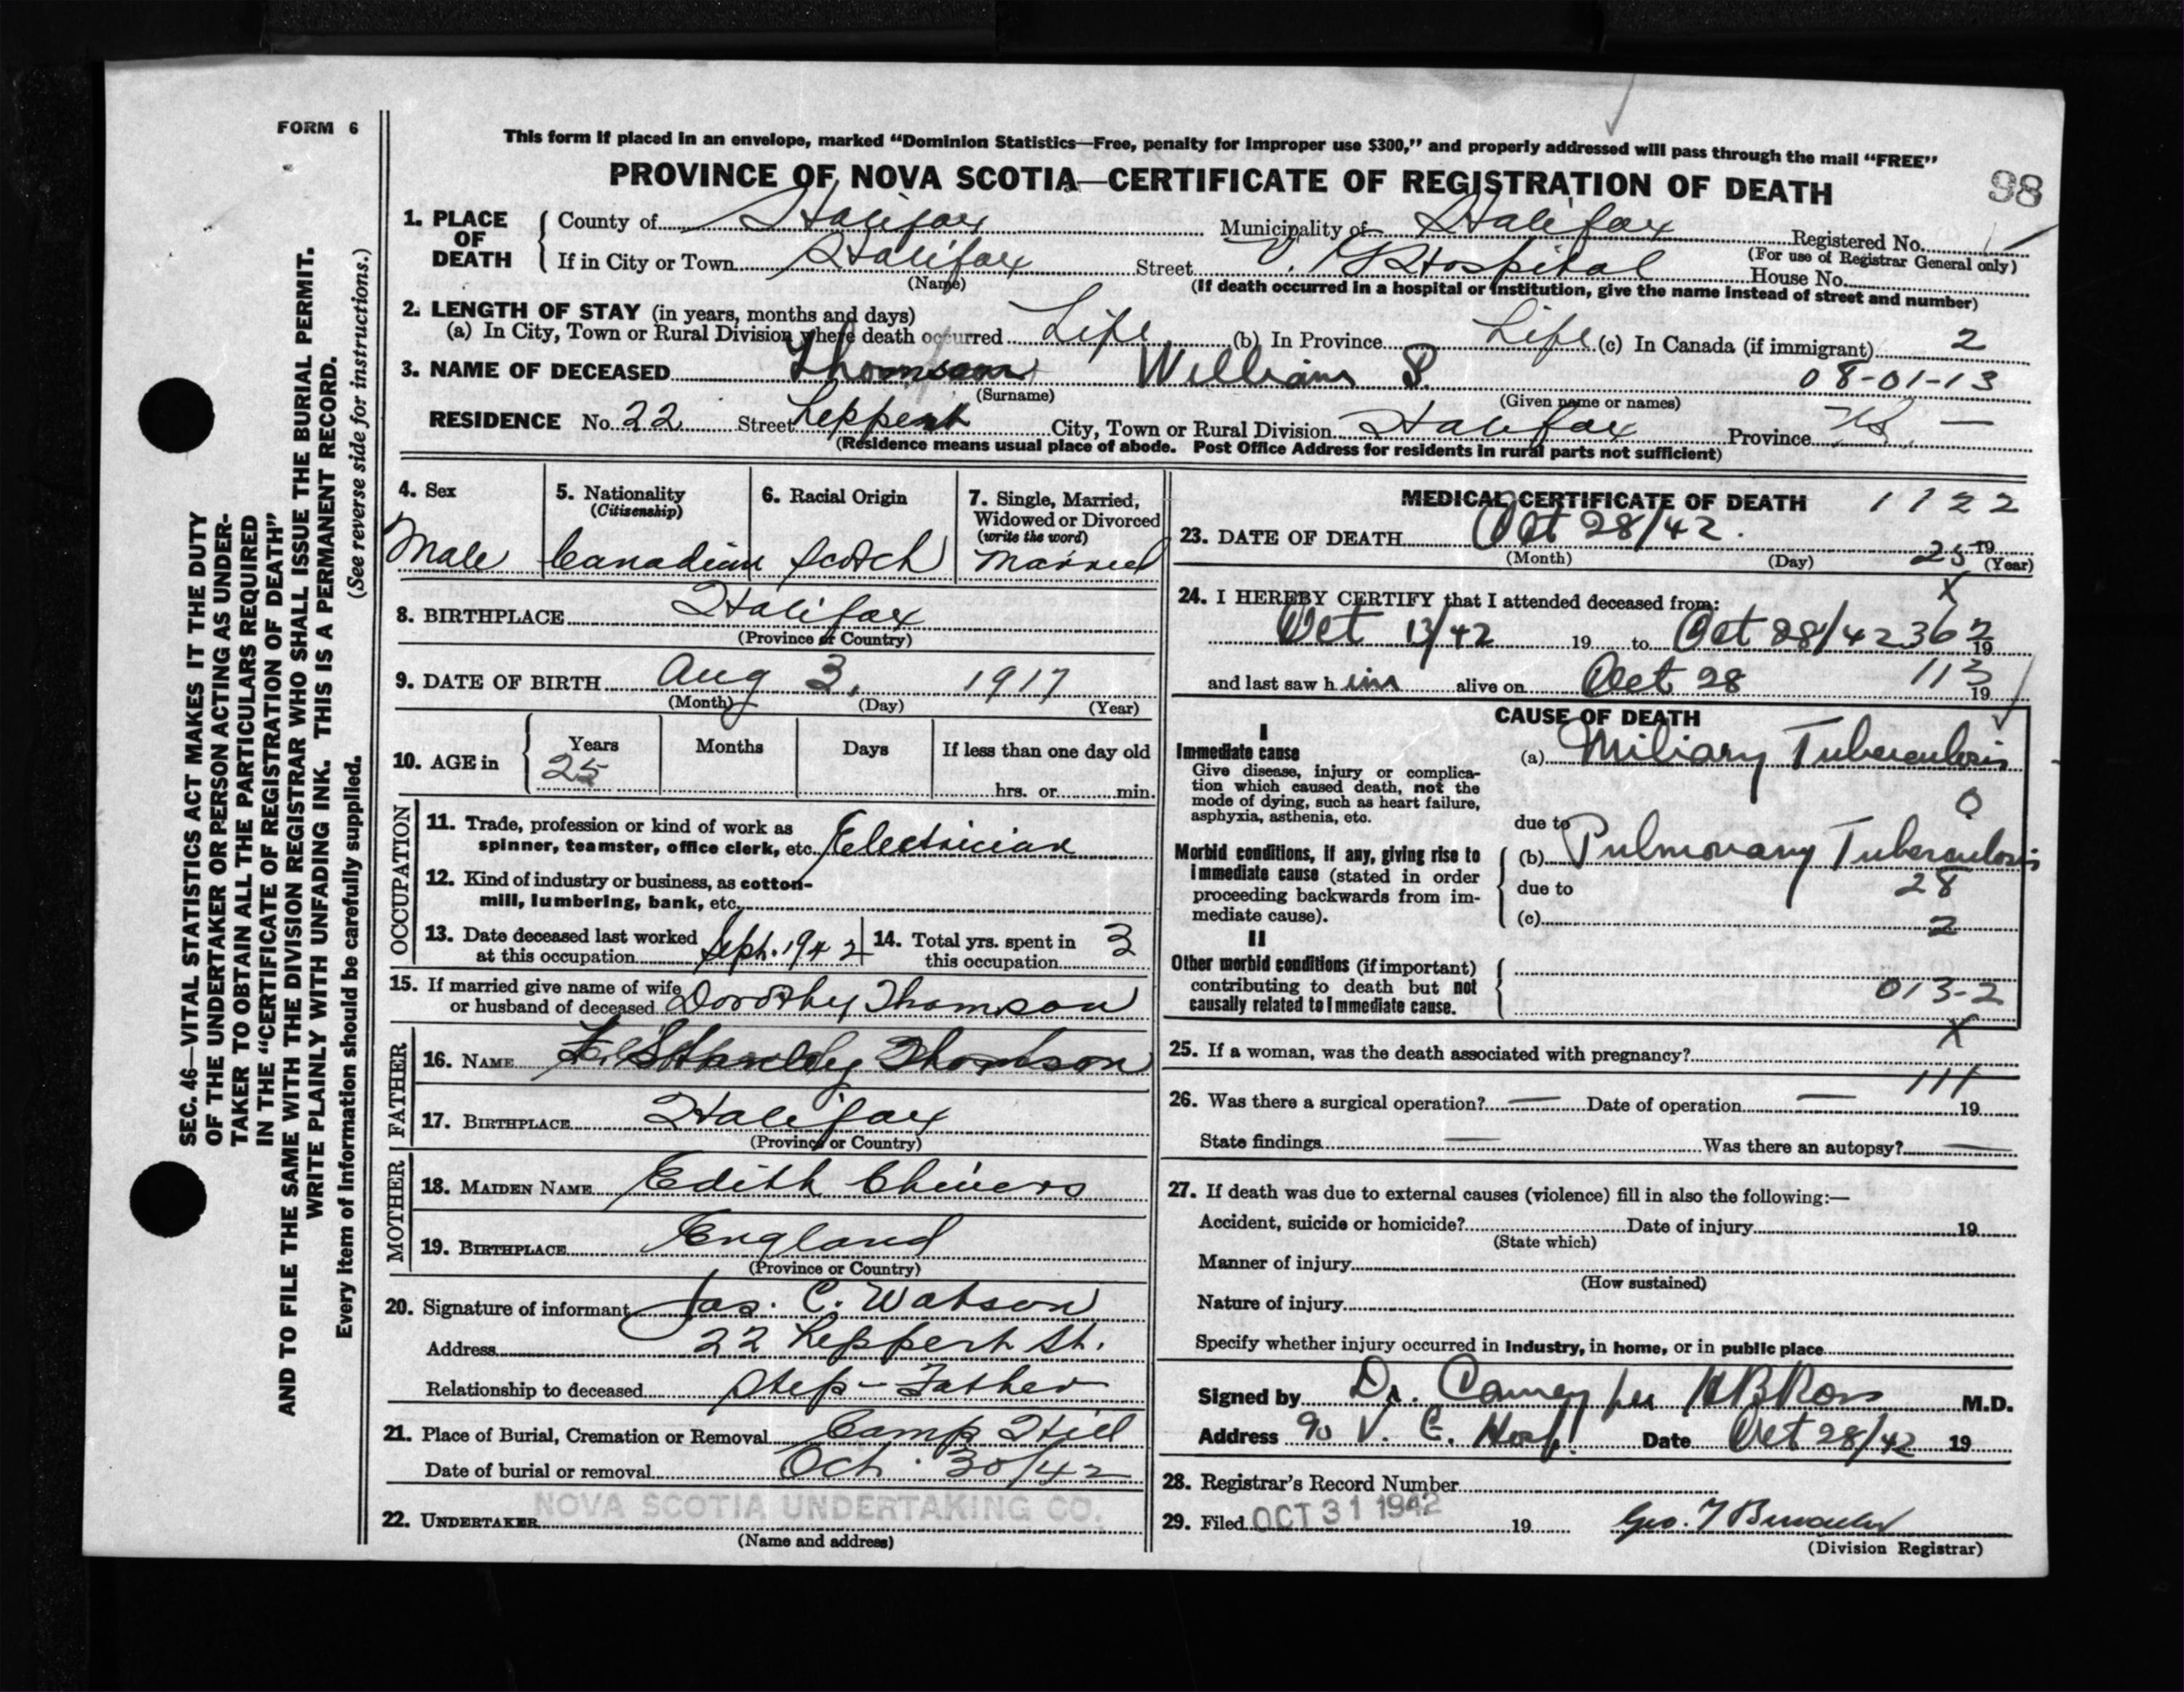 FORM 6
This form if placed in an envelope, marked “Dominion Statistics—Free, penalty for improper use $300,” and properly addressed will pass through the mail “FREE”
PROVINCE OF NOVA SCOTIA—CERTIFICATE OF REGISTRATION OF DEATH
98
1. PLACE OF DEATH
County of Halifax Municipality of Halifax Registered No.
(For use of Registrar General only)
If in City or Town Halifax Street V. G Hospital House No.
(Name) (If death occurred in a hospital or institution, give the name instead of street and number)
2. LENGTH OF STAY (in years, months and days)
(a) In City, Town or Rural Division where death occurred Life (b) In Province Life (c) In Canada (if immigrant) 2
3. NAME OF DECEASED Thomson William S. 08-01-13
(Surname) (Given name or names)
RESIDENCE No. 22 Street Leppert City, Town or Rural Division Halifax Province N.S. —
(Residence means usual place of abode. Post Office Address for residents in rural parts not sufficient)
4. Sex
Male
5. Nationality
(Citizenship)
Canadian
6. Racial Origin
Scotch
7. Single, Married,
Widowed or Divorced
(write the word)
Married
8. BIRTHPLACE Halifax
(Province or Country)
9. DATE OF BIRTH Aug 3, 1917
(Month) (Day) (Year)
10. AGE in
Years Months Days If less than one day old
25
hrs. or min.
OCCUPATION
11. Trade, profession or kind of work as
spinner, teamster, office clerk, etc. Electrician
12. Kind of industry or business, as cotton-
mill, lumbering, bank, etc.
13. Date deceased last worked
at this occupation Sept. 1942
14. Total yrs. spent in
this occupation 3
15. If married give name of wife
or husband of deceased Dorothy Thomson
FATHER
16. NAME Stanley Thomson
17. BIRTHPLACE Halifax
(Province or Country)
MOTHER
18. MAIDEN NAME Edith Chivers
19. BIRTHPLACE England
(Province or Country)
20. Signature of informant Jas. C. Watson
Address 22 Leppert St.
Relationship to deceased Step-Father
21. Place of Burial, Cremation or Removal Camp Hill
Date of burial or removal Oct. 30/42
22. UNDERTAKER NOVA SCOTIA UNDERTAKING CO.
(Name and address)
MEDICAL CERTIFICATE OF DEATH 1122
23. DATE OF DEATH Oct 28/42. 25 19
(Month) (Day) (Year)
X
24. I HEREBY CERTIFY that I attended deceased from:
Oct 13/42 19 to Oct 28/42 362 19
and last saw h im alive on Oct 28 113 19
CAUSE OF DEATH
I
Immediate cause
Give disease, injury or complica-
tion which caused death, not the
mode of dying, such as heart failure,
asphyxia, asthenia, etc.
(a) Miliary Tuberculosis
0
due to
Morbid conditions, if any, giving rise to
immediate cause (stated in order
proceeding backwards from im-
mediate cause).
(b) Pulmonary Tuberculosis
due to 28
(c) 2
II
Other morbid conditions (if important)
contributing to death but not
causally related to immediate cause.
013-2
X
25. If a woman, was the death associated with pregnancy?
111
26. Was there a surgical operation? — Date of operation — 19
State findings — Was there an autopsy? —
27. If death was due to external causes (violence) fill in also the following:—
Accident, suicide or homicide? Date of injury 19
(State which)
Manner of injury
(How sustained)
Nature of injury
Specify whether injury occurred in industry, in home, or in public place
Signed by Dr. per H B Ross M.D.
Address % V. G. Hosp. Date Oct 28/42 19
28. Registrar’s Record Number
29. Filed OCT 31 1942 19 Geo.
(Division Registrar)
SEC. 46—VITAL STATISTICS ACT MAKES IT THE DUTY
OF THE UNDERTAKER OR PERSON ACTING AS UNDER-
TAKER TO OBTAIN ALL THE PARTICULARS REQUIRED
IN THE “CERTIFICATE OF REGISTRATION OF DEATH”
AND TO FILE THE SAME WITH THE DIVISION REGISTRAR WHO SHALL ISSUE THE BURIAL PERMIT.
WRITE PLAINLY WITH UNFADING INK. THIS IS A PERMANENT RECORD.
Every item of information should be carefully supplied. (See reverse side for instructions.)